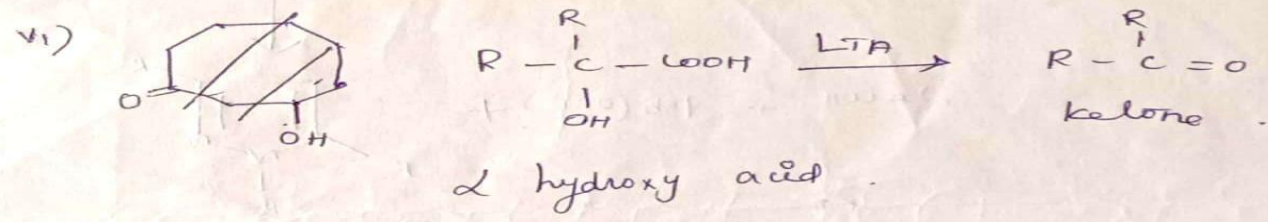 vi)
O
OH
R
R - C - COOH LTA → R - C = O
R
OH
ketone .
α hydroxy acid .